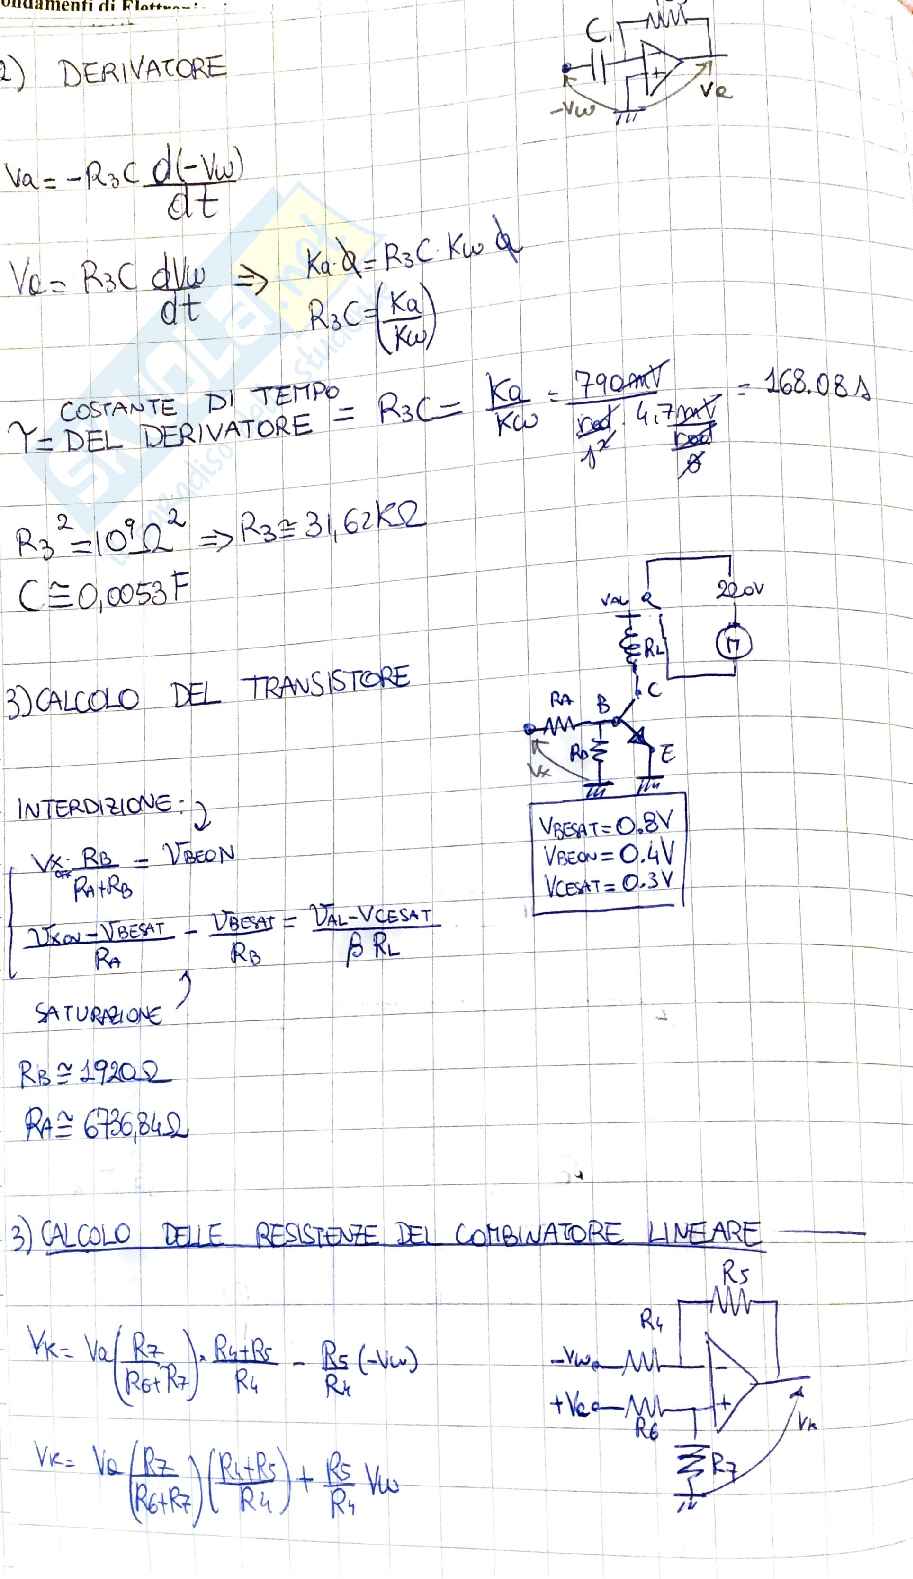 ondamenti di Elettron
2) DERIVATORE
C1
-Vω
Va
Va = -R3C d(-Vω)/dt
Va = R3C dVω/dt ⇒ Ka·α = R3C·Kω α
R3C = (Ka/Kω)
τ = COSTANTE DI TEMPO DEL DERIVATORE = R3C = Ka/Kω = 790mV / (rad/s² · 4,7 mV/(rad/s)) = 168.08 s
R3² = 10⁹Ω² ⇒ R3 ≅ 31,62KΩ
C ≅ 0,0053F
3) CALCOLO DEL TRANSISTORE
VAL
220V
RL
M
C
RA
B
RB
E
Vx
VBESAT = 0.8V
VBEON = 0.4V
VCESAT = 0.3V
INTERDIZIONE:
VxOFF · RB/(RA+RB) = VBEON
(VxON - VBESAT)/RA - VBESAT/RB = (VAL - VCESAT)/(β RL)
SATURAZIONE
RB ≅ 1920Ω
RA ≅ 6736,84Ω
3) CALCOLO DELLE RESISTENZE DEL COMBINATORE LINEARE
R5
R4
-Vω
+Va
R6
VK
R7
VK = Va (R7/(R6+R7)) · (R4+R5)/R4 - R5/R4 (-Vω)
VK = Va (R7/(R6+R7)) ((R4+R5)/R4) + R5/R4 Vω